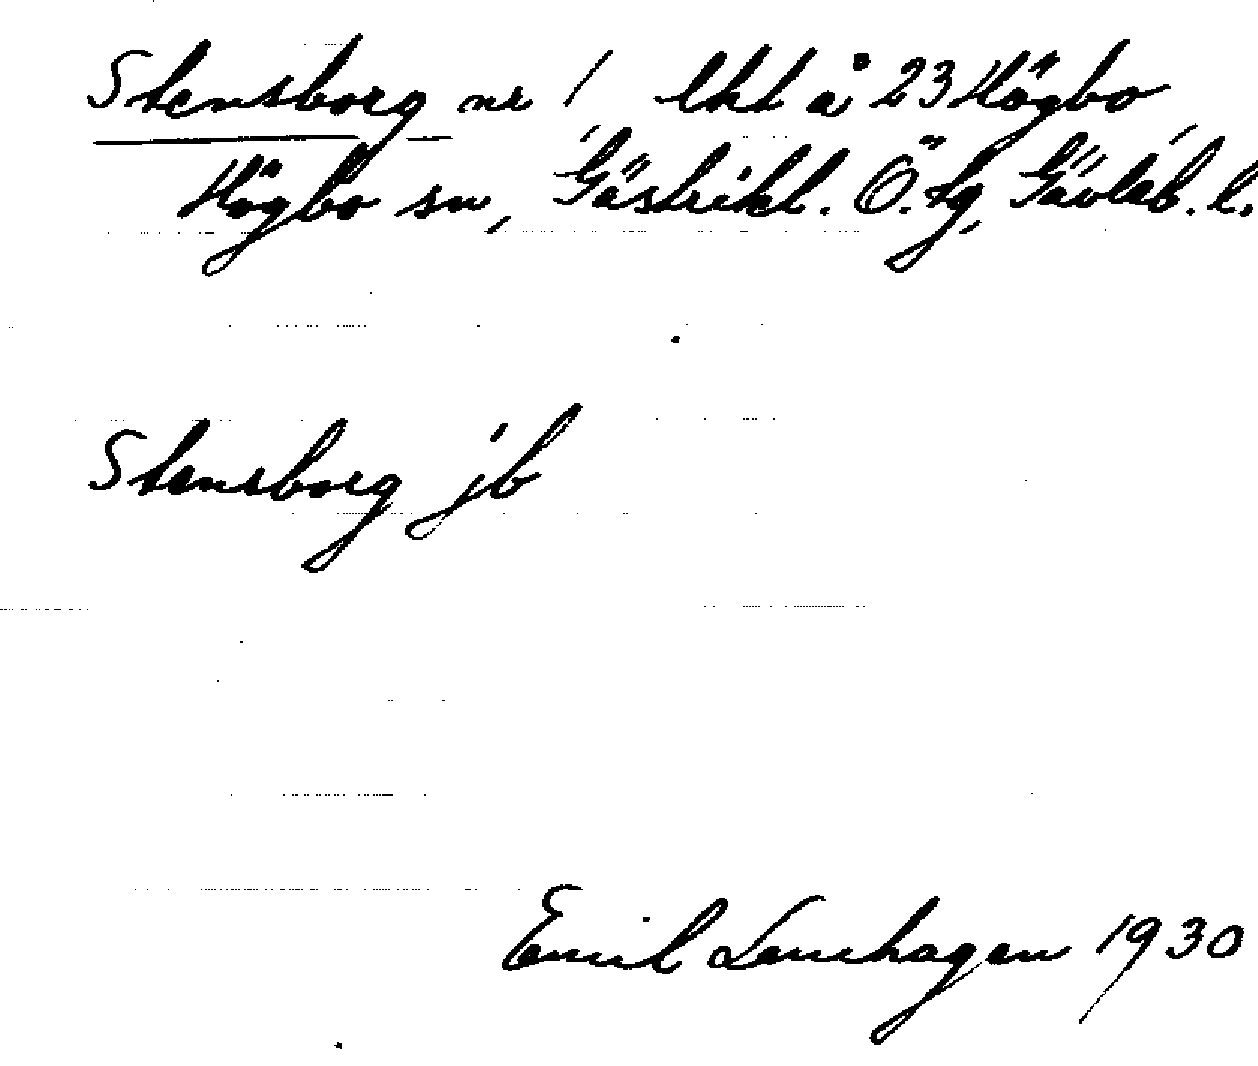 Stensborg nr 1 lht å 23 Högbo
Högbo sn, Gästrikl. Ö. tg, Gävleb. l.
Stensborg jb
Emil Lenhagen 1930